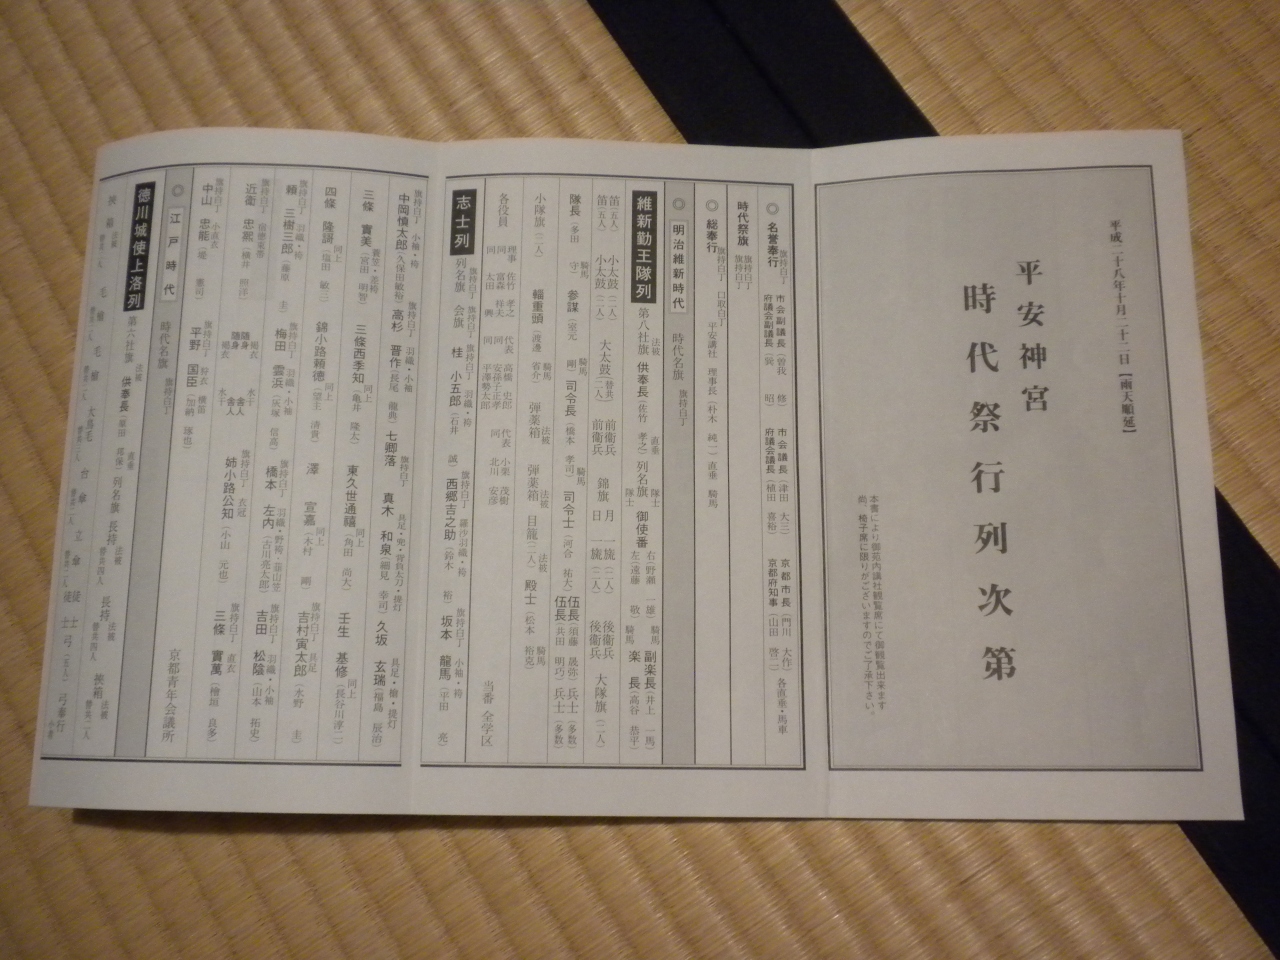 平成二十八年十月二十二日【雨天順延】
平安神宮
時代祭行列次第
本書により御苑内講社観覧席にて御観覧出来ます
尚、椅子席に限りがございますのでご了承下さい。
◎ 名誉奉行 旗持白丁
市会副議長(曽我 修) 市会議長(津田 大三) 京都市長(門川 大作) 各直垂・馬車
府議会議長(植田 喜裕) 京都府知事(山田 啓二)
時代祭旗 旗持白丁 旗持白丁
◎ 総奉行 旗持白丁 口取白丁 平安講社 理事長(朴木 純一)直垂 騎馬
◎ 明治維新時代 時代名旗 旗持白丁
維新勤王隊列 第八社旗 法被 供奉長(佐竹 孝之)直垂 列名旗 隊士 御使番 右(野瀬 一雄)騎馬 副楽長(井上 一馬)
隊士 左(遠藤 敬)騎馬 楽長(高谷 恭平)
笛(五人) 小太鼓(二人) 大太鼓(二人)替共 前衛兵 錦旗 月 一旒(二人) 後衛兵 大隊旗(二人)
笛(五人) 小太鼓(二人) 前衛兵 日 一旒(二人) 後衛兵
隊長(多田 守)騎馬 参謀(室元 剛)騎馬 司令長(橋本 孝司)騎馬 司令士(河合 祐大) 伍長(須藤 晟弥) 兵士(多数)
伍長(共田 明巧) 兵士(多数)
小隊旗(二人) 輜重頭(渡邊 省介)騎馬 弾薬箱 法被 弾薬箱 法被 目籠(二人)法被 殿士(松本 裕克)騎馬
各役員 理事 佐竹 孝之 代表 高橋 史郎 代表 小栗 茂樹 当番 全学区
同 富森 祥夫 同 安孫子正孝 同 北川 安彦
同 太田 興 同 平澤勢太郎
志士列 列名旗 旗持白丁 会旗 旗持白丁 桂 小五郎 羽織・袴(石井 誠) 旗持白丁 西郷吉之助 羅沙羽織・袴(鈴木 裕) 旗持白丁 坂本 龍馬 小袖・袴(平田 亮)
旗持白丁 中岡慎太郎 小袖・袴(久保田敏裕) 旗持白丁 高杉 晋作 羽織・小袖(長尾 龍典) 七卿落 旗持白丁 真木 和泉 具足・兜・背負太刀・提灯(細見 幸司) 久坂 玄瑞 具足・槍・提灯(福島 辰治)
三條 實美 蓑笠・差袴(宮田 明智) 三條西季知 同上(亀井 隆太) 東久世通禧 同上(角田 尚大) 壬生 基修 同上(長谷川淳二)
四條 隆謌 同上(塩田 敏三) 錦小路頼徳 同上(望主 清貴) 澤 宣嘉 同上(木村 剛) 旗持白丁 吉村寅太郎 具足(水野 圭)
旗持白丁 頼 三樹三郎 羽織・袴(藤原 圭) 旗持白丁 梅田 雲浜 羽織・小袖(灰塚 信高) 旗持白丁 橋本 左内 羽織・野袴・韮山笠(古川亮太郎) 旗持白丁 吉田 松陰 羽織・小袖(山本 拓史)
旗持白丁 近衛 忠熙(横井 照洋) 随身 褐衣 舎人 水干 旗持白丁 姉小路公知 衣冠(小山 元也) 旗持白丁 三條 實萬 直衣(檜垣 良多)
随身 褐衣 舎人 水干
旗持白丁 中山 忠能 小直衣(堤 憲司) 旗持白丁 平野 国臣 狩衣 横笛(加納 琢也) 京都青年会議所
◎ 江戸時代 時代名旗 旗持白丁
徳川城使上洛列 第六社旗 法被 供奉長 直垂 列名旗 長持 法被 替共四人 長持 法被 替共四人 挾箱 法被 替共二人
挾箱 法被 毛槍 毛槍 大鳥毛 台傘 立傘 徒士 徒士 弓(五人) 弓奉行